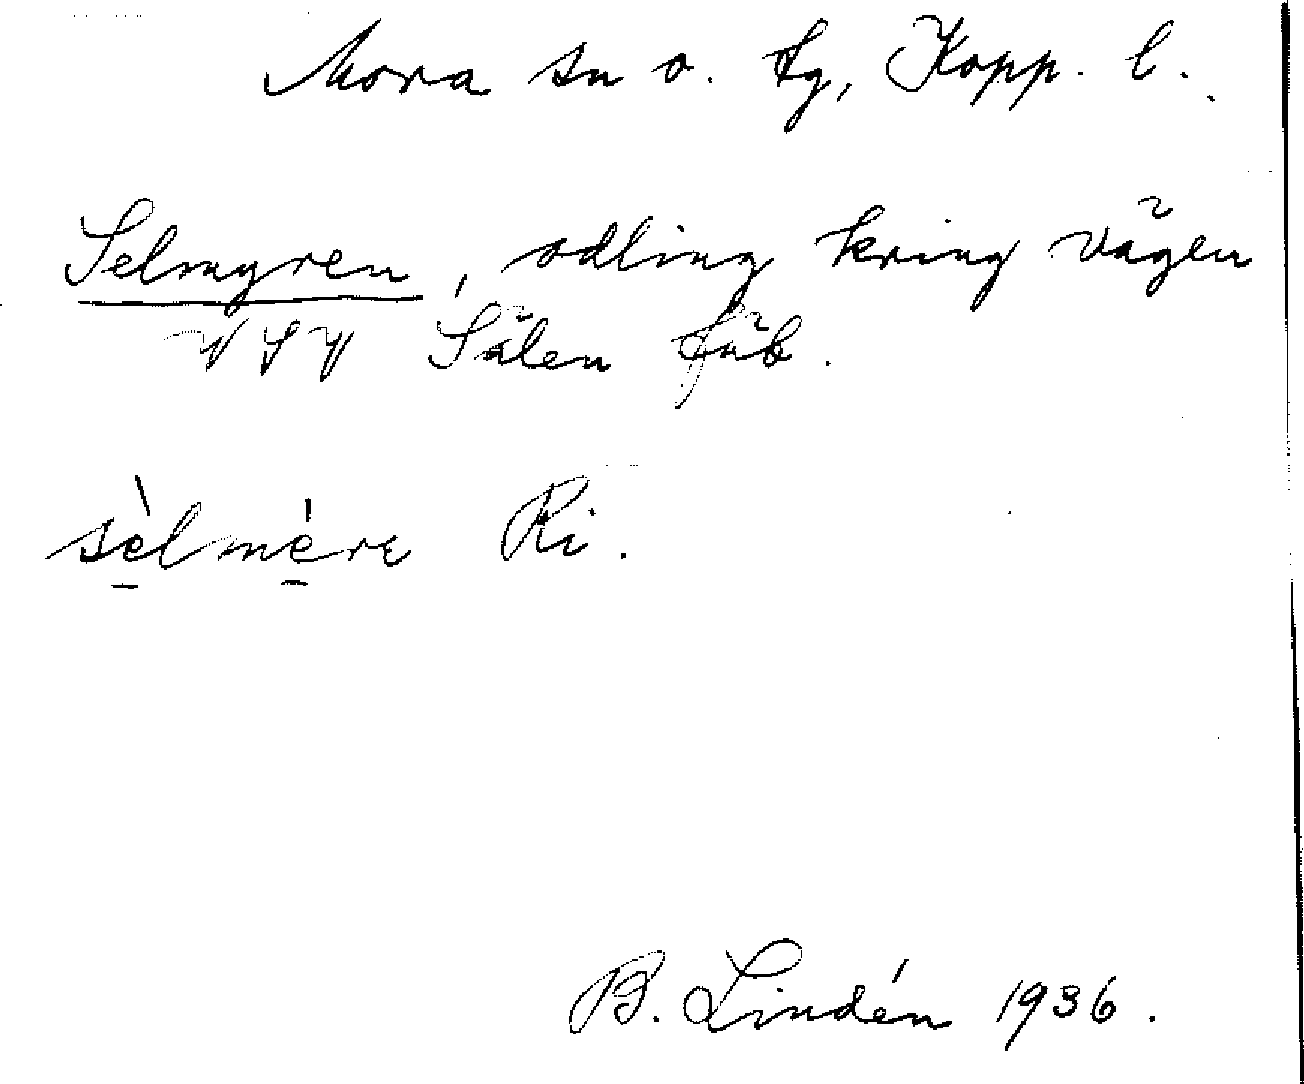 Mora sn o. tg, Kopp. l.
Selmyren, odling kring vägen
VSV Sälen fäb.
sèlmére Ri.
B. Lindén 1936.